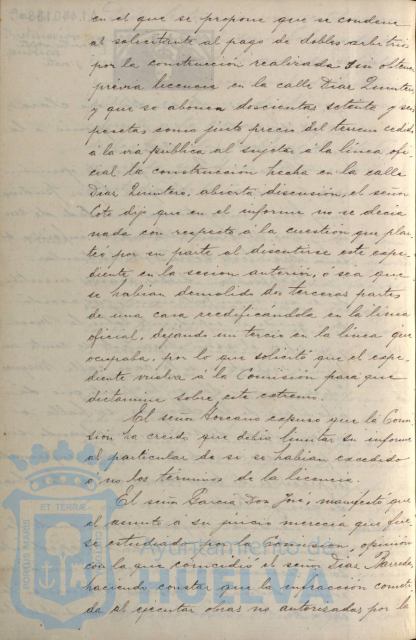 en el que se propone que se condene
al solicitante al pago de dobles arbitrios
por la construcción realizada sin obtener
previa licencia en la calle Diaz Quintero
y que se abonen doscientas setenta y seis
pesetas como justo precio del terreno cedido
á la via pública al sujetar á la linea ofi-
cial la construcción hecha en la calle
Diaz Quintero, abierta discusión, el señor
Coto dijo que en el informe no se decia
nada con respecto á la cuestión que plan-
teó por su parte al discutirse este espe-
diente en la sesion anterior, ó sea que
se habian demolido dos terceras partes
de una casa reedificándola en la linea
oficial, dejando un tercio en la linea que
ocupaba, por lo que solicitó que el espe-
diente vuelva á la Comisión para que
dictamine sobre este estremo.
El señor expuso que la Comi-
sión ha creido que debia limitar su informe
al particular de si se habian excedido
ó no los términos de la licencia.
El señor Garcia, Don José, manifestó que
el asunto a su juicio merecia que fue-
se estudiado por la Comision, opinión
con la que coincidió el señor Diaz
haciendo constar que la infracción cometi-
da al ejecutar obras no autorizadas por la
Ayuntamiento de
HUELVA
PORTUS MARIS
ET TERRÆ